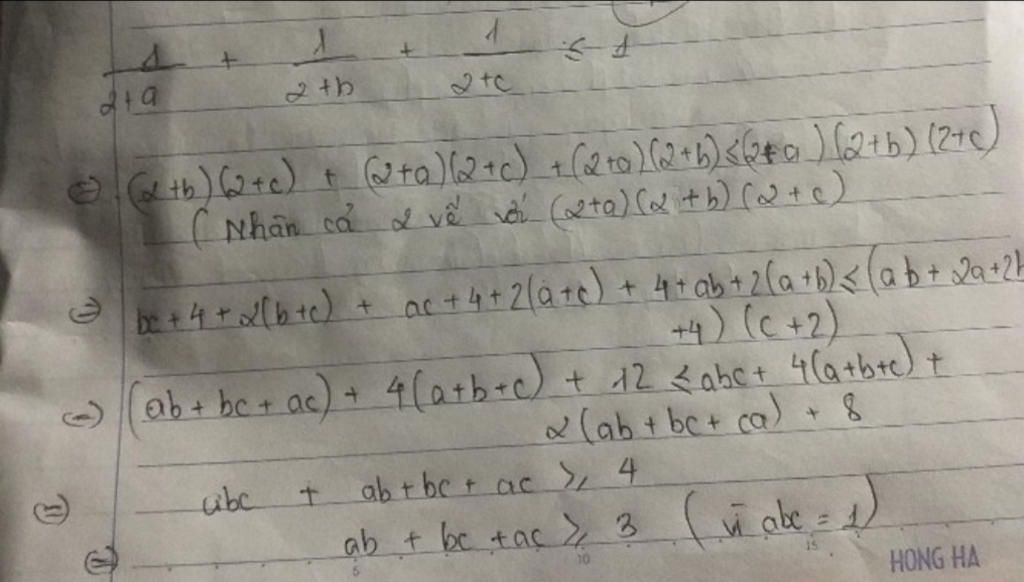 1/(2+a) + 1/(2+b) + 1/(2+c) ≤ 1
⇔ (2+b)(2+c) + (2+a)(2+c) + (2+a)(2+b) ≤ (2+a)(2+b)(2+c)
( Nhân cả 2 vế với (2+a)(2+b)(2+c)
⇔ bc+4+2(b+c) + ac+4+2(a+c) + 4+ab+2(a+b) ≤ (ab+2a+2b
+4)(c+2)
⇔ (ab+bc+ac) + 4(a+b+c) + 12 ≤ abc + 4(a+b+c) +
2(ab+bc+ca) + 8
⇔ abc + ab+bc+ac ≥ 4
⇔ ab + bc +ac ≥ 3 ( vì abc = 1)
5 10 15
HONG HA